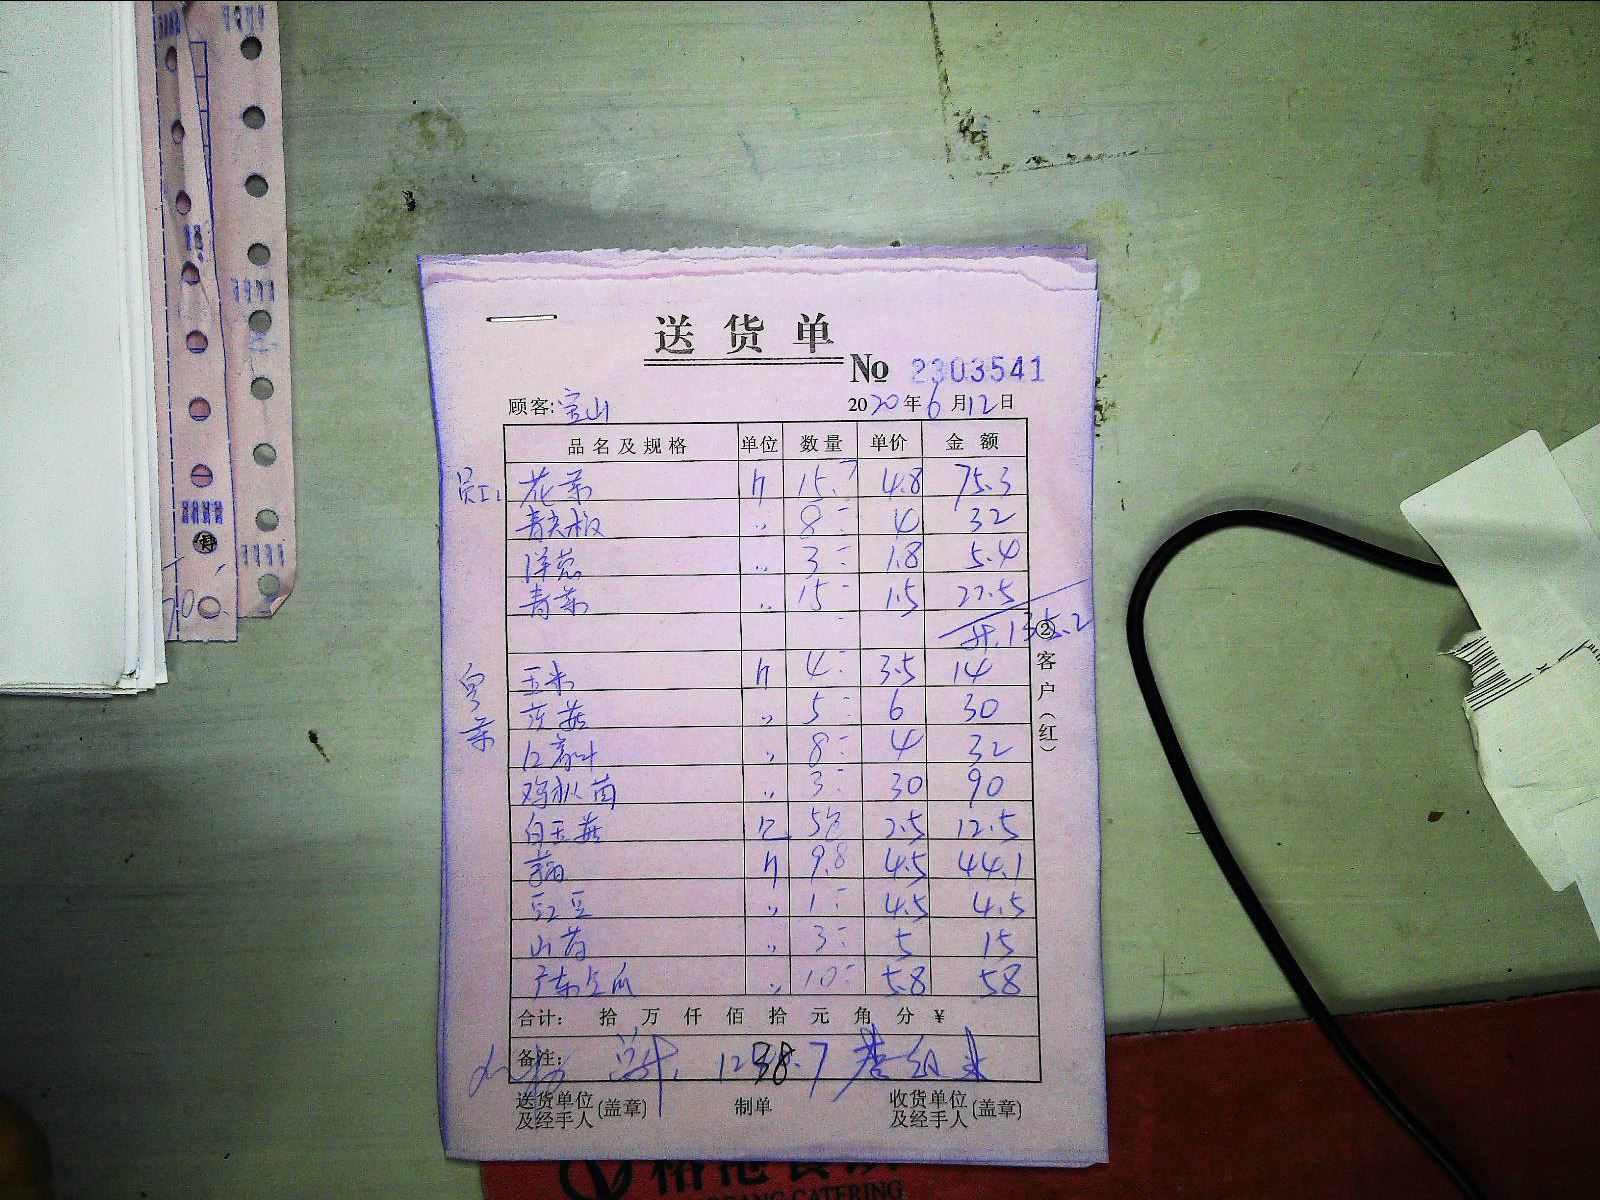 送货单
No 2303541
顾客: 宝山 2020年6月12日
品名及规格 单位 数量 单价 金额
员工: 花菜 斤 15.7 4.8 75.3
青尖椒 〃 8 4 32
洋葱 〃 3 1.8 5.4
青菜 〃 15 1.5 22.5
计. 135.2
粤菜 玉米 斤 4 3.5 14
〃 5 6 30
〃 8 4 32
鸡枞菌 〃 3 30 90
白玉菇 包 5包 2.5 12.5
斤 9.8 4.5 44.1
豇豆 〃 1 4.5 4.5
山药 〃 3 5 15
广东丝瓜 〃 10 5.8 58
合计: 拾 万 仟 佰 拾 元 角 分 ¥
备注: 总计. 1238.7
送货单位及经手人(盖章) 制单 收货单位及经手人(盖章)
②客户(红)
CATERING